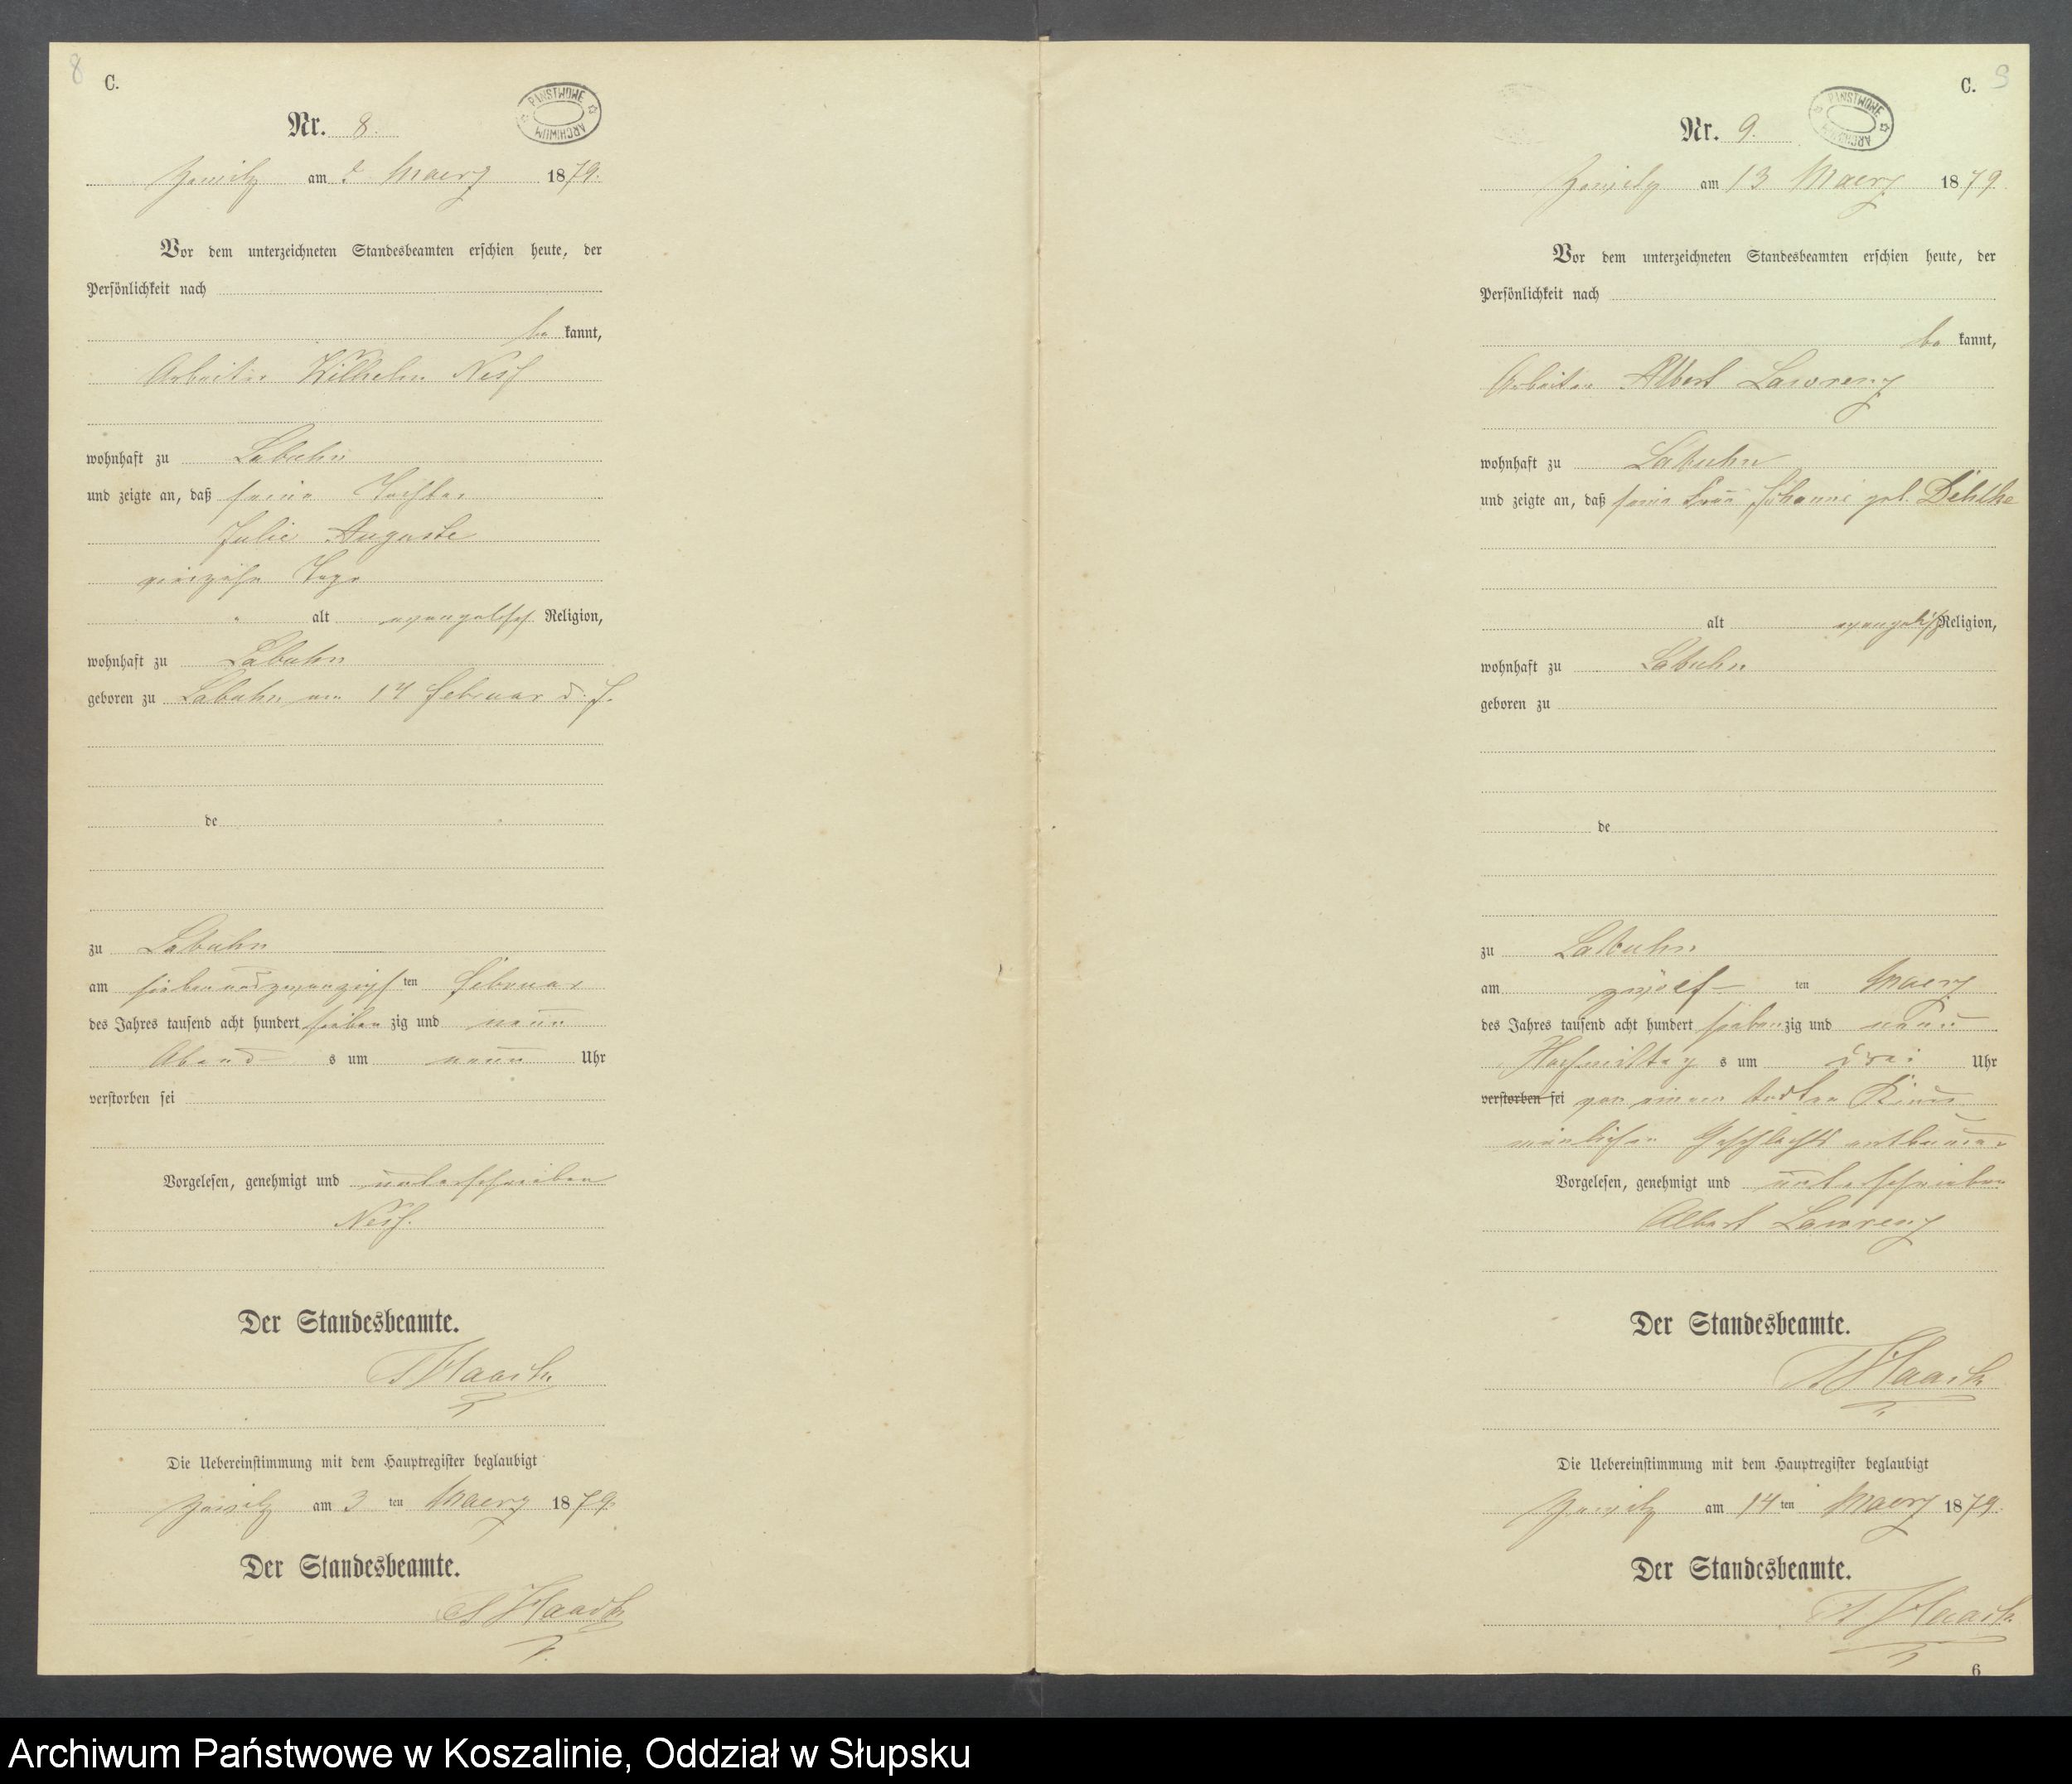 8
C.
PAŃSTWOWE ARCHIWUM
Nr. 8.
am 2 Maerz 1879.
Vor dem unterzeichneten Standesbeamten erschien heute, der
Persönlichkeit nach
be kannt,
Arbeiter Wilhelm
wohnhaft zu Labuhn
und zeigte an, daß seine Tochter
Julie Auguste
vierzehn Tage
alt evangelisch Religion,
wohnhaft zu Labuhn
geboren zu Labuhn am 14 Februar d. J.
de
zu Labuhn
am siebenundzwanzigsten Februar
des Jahres tausend acht hundert sieben zig und neun
Abend s um neun Uhr
verstorben sei
Vorgelesen, genehmigt und unterschrieben
Der Standesbeamte.
Haack
Die Uebereinstimmung mit dem Hauptregister beglaubigt
am 3 ten Maerz 1879.
Der Standesbeamte.
Haack
C. 9
PAŃSTWOWE ARCHIWUM
Nr. 9.
am 13 Maerz 1879
Vor dem unterzeichneten Standesbeamten erschien heute, der
Persönlichkeit nach
be kannt,
Arbeiter Albert Lawrenz
wohnhaft zu Labuhn
und zeigte an, daß seine Frau Johanne geb.
alt evangelisch Religion,
wohnhaft zu Labuhn
geboren zu
de
zu Labuhn
am zwölf ten Maerz
des Jahres tausend acht hundert sieben zig und neun
Nachmittag s um drei Uhr
verstorben sei von einem todten Kinde
Geschlechts entbunden
Vorgelesen, genehmigt und unterschrieben
Albert Lawrenz
Der Standesbeamte.
Haack
Die Uebereinstimmung mit dem Hauptregister beglaubigt
am 14 ten Maerz 1879.
Der Standesbeamte.
Haack
6
Archiwum Państwowe w Koszalinie, Oddział w Słupsku